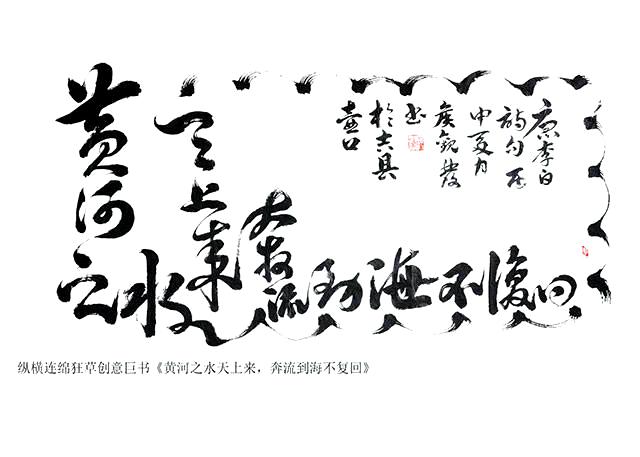 黄河之水
天上来
奔流到海不復回
唐李白
詩句 丙
申夏月
书
於吉县
壶口
纵横连绵狂草创意巨书《黄河之水天上来，奔流到海不复回》